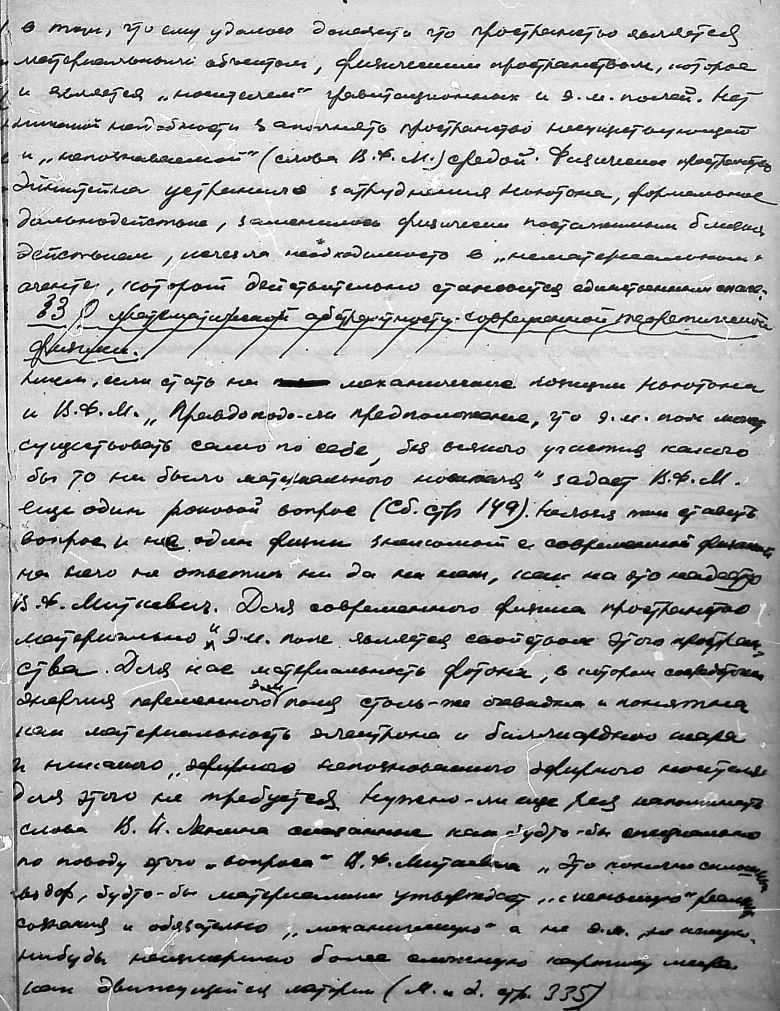 в том, что ему удалось доказать что пространство является
материальным объектом, физическим пространством, которое
и является „носителем" гравитационных и э.м. полей. Нет
никакой надобности заполнять пространство несуществующей
и „непознаваемой" (слова В.Ф.М.) средой. Физическое пространство
Эйнштейна устранило затруднения Ньютона, формальное
дальнодействие, заменилось физически постигаемым близко
действием, исчезла необходимость в „нематериальном"
агенте, который действительно становится единственным
33 О математической абстрактности современной теоретической
физики.
если стать на механические позиции Ньютона
и В.Ф.М. „Правдоподобно-ли предположение, что э.м. поле может
существовать само по себе, без всякого участия какого
бы то ни было материального носителя" задает В.Ф.М.
еще один роковой вопрос (Сб. стр 149). Нельзя так ставить
вопрос и не один физик знакомый с современной физикой
на него не ответит ни да ни нет, как на это надеется
В.Ф. Миткевич. Для современного физика пространство
материально и э.м. поле является свойством этого простран-
ства. Для нас материальность фотона, в котором сосредоточена
энергия переменного э.м. поля столь-же очевидна и понятна
как материальность электрона и биллиардного шара
и никакого „эфирного непознаваемого эфирного носителя
для этого не требуется. Нужно-ли еще раз напоминать
слова В.И. Ленина сказанные как будто-бы специально
по поводу этого „вопроса" В.Ф. Миткевича „Это конечно сплошной
вздор, будто-бы материализм утверждает „меньшую" реальность
сознания и обязательно „механическую" а не э.м., не какую-
нибудь неизмеримо более сложную картину мира.
как движущейся материи (М. и Э. стр. 335)